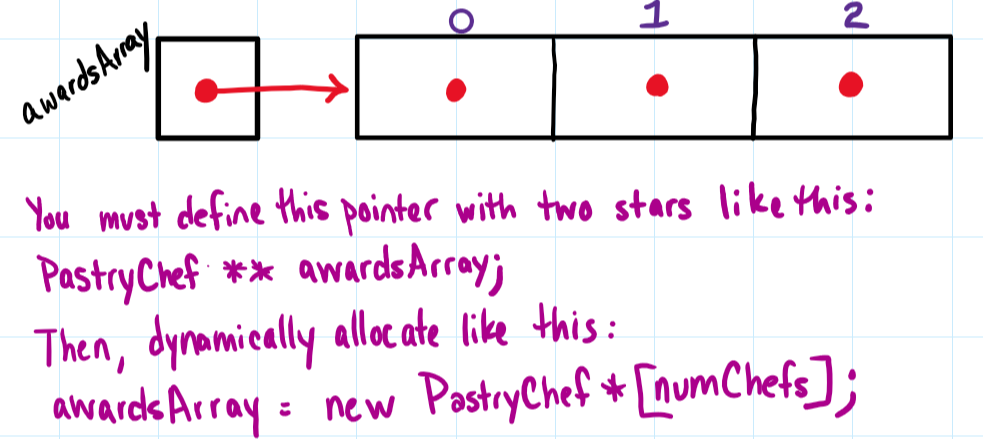 awardsArray
0 1 2
You must define this pointer with two stars like this:
PastryChef ** awardsArray;
Then, dynamically allocate like this:
awardsArray = new PastryChef *[numChefs];